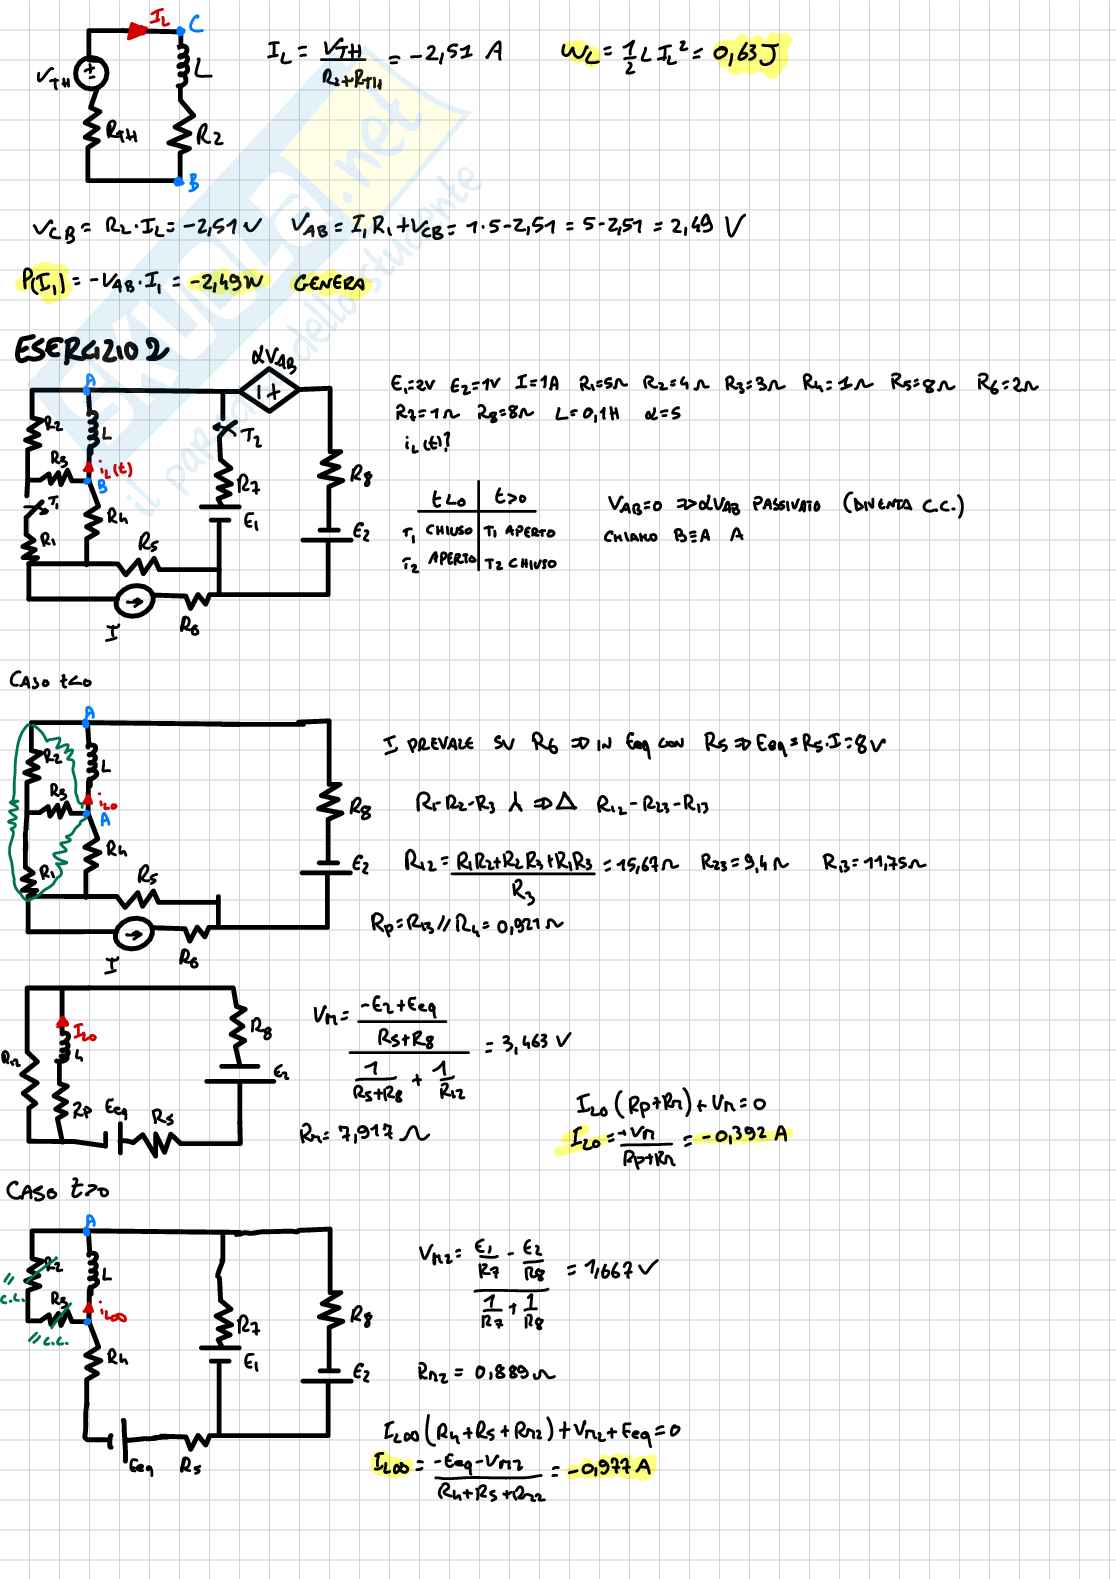 I_L C
V_TH L
R_TH R_2
B
I_L = V_TH / (R_2+R_TH) = -2,51 A   W_L = 1/2 L I_L² = 0,63 J
V_CB = R_2·I_L = -2,51 V   V_AB = I_1 R_1 + V_CB = 1·5-2,51 = 5-2,51 = 2,49 V
P(I_1) = -V_AB·I_1 = -2,49W   GENERA
SKUOLA.net
il paradiso dello studente
ESERCIZIO 2
A αV_AB
R_2 L T_2
R_3 i_L(t) B R_7 R_8
T_1 R_4 E_1 E_2
R_1 R_5
I R_6
E_1=2V E_2=1V I=1A R_1=5Ω R_2=4Ω R_3=3Ω R_4=1Ω R_5=8Ω R_6=2Ω
R_7=1Ω R_8=8Ω L=0,1H α=5
i_L(t)?
t<0 t>0
T_1 CHIUSO T_1 APERTO
T_2 APERTO T_2 CHIUSO
V_AB=0 => αV_AB PASSIVATO (DIVENTA C.C.)
CHIAMO B≡A A
CASO t<0
A
R_2 L
R_3 i_L0 A R_8
R_1 R_4 E_2
R_5
I R_6
I PREVALE SU R_6 => IN Eeq CON R_5 => Eeq = R_5·I = 8V
R_1-R_2-R_3 ⅄ => Δ R_12-R_23-R_13
R_12 = (R_1R_2+R_2R_3+R_1R_3) / R_3 = 15,67Ω   R_23=9,4Ω   R_13=11,75Ω
R_p = R_13 // R_4 = 0,921Ω
I_L0 R_8
R_12 L E_2
R_p Eeq R_5
V_M = ((-E_2+Eeq) / (R_5+R_8)) / (1/(R_5+R_8) + 1/R_12) = 3,463 V
R_M = 7,917 Ω
I_L0 (R_p+R_M) + V_M = 0
I_L0 = -V_M / (R_p+R_M) = -0,392 A
CASO t>0
A
R_2 L
// C.C.
R_3 i_L∞ R_7 R_8
// C.C.
R_4 E_1 E_2
Eeq R_5
V_M2 = (E_1/R_7 - E_2/R_8) / (1/R_7 + 1/R_8) = 1,667 V
R_M2 = 0,889Ω
I_L∞ (R_4+R_5+R_M2) + V_M2 + Eeq = 0
I_L∞ = (-Eeq-V_M2) / (R_4+R_5+R_M2) = -0,977 A